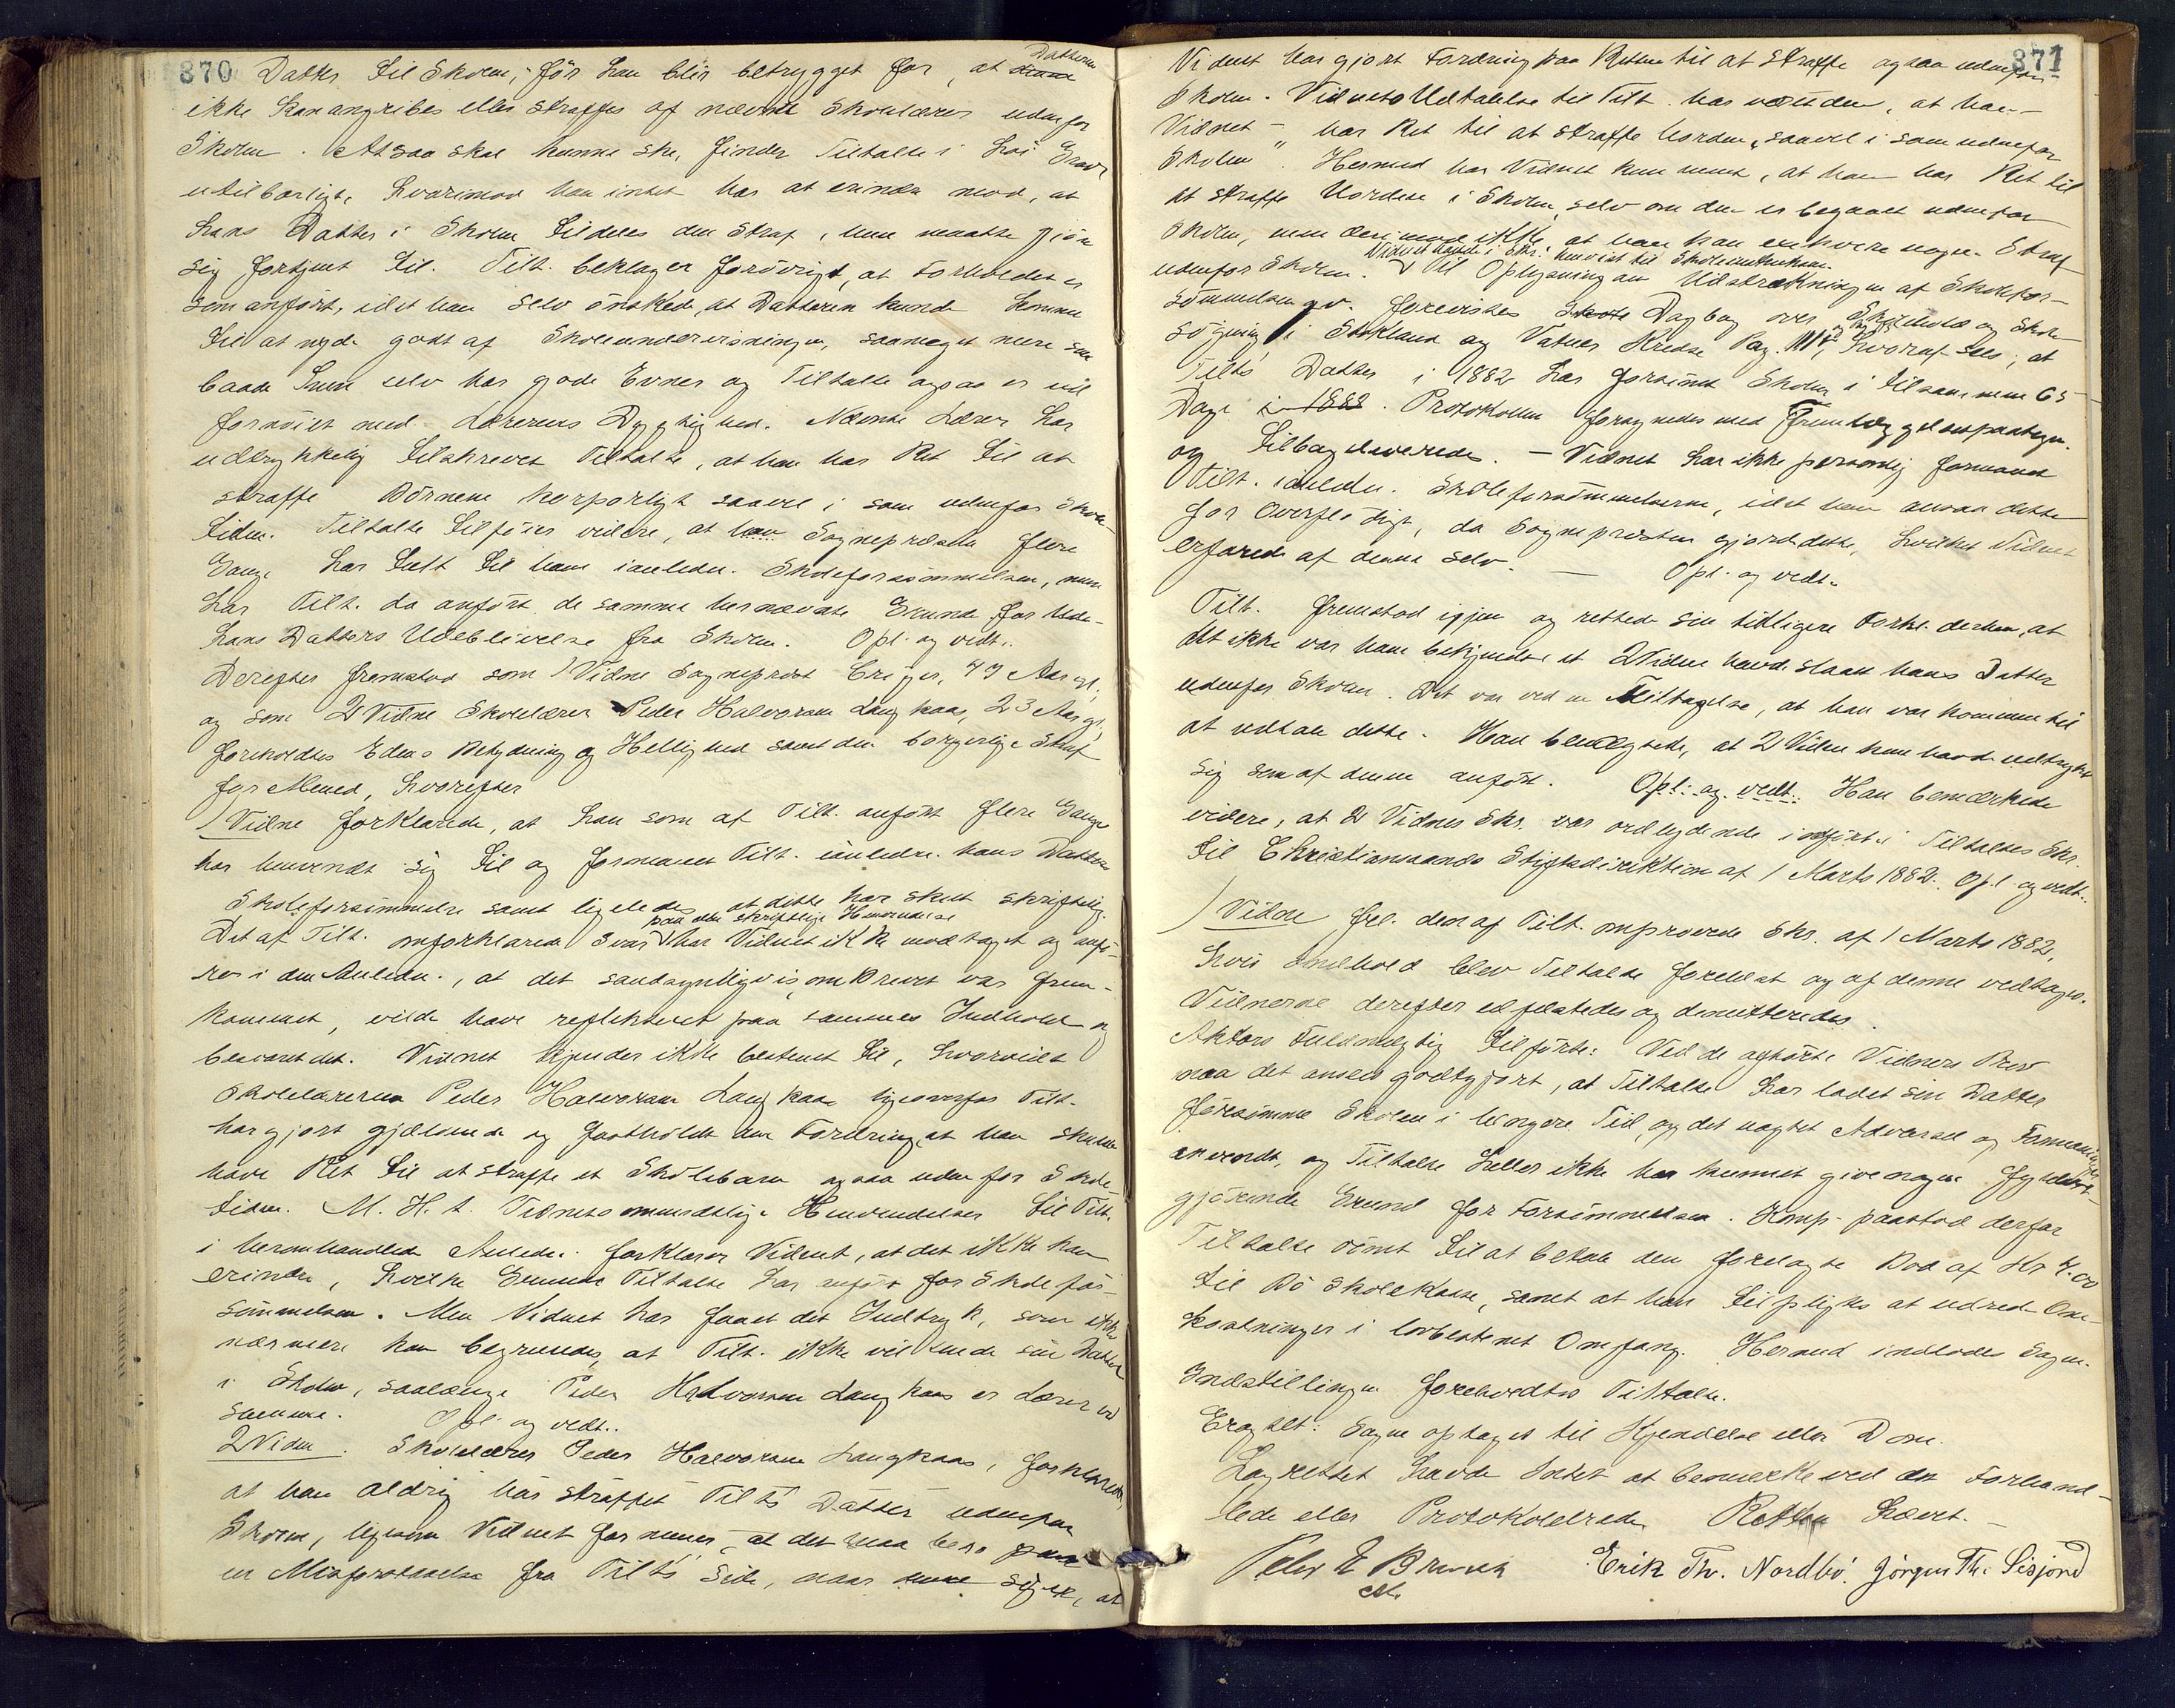 370 Datter til Skolen, før han blir betrygget for, at Datteren
ikke kan angribes eller straffes af nævnte Skolelærer udenfor
Skolen. At saa skal kunne ske, finder Tiltalte i høi Grad
utilbørligt, hvorimod han intet har at erindre mod, at
hans Datter i Skolen tildeles den Straf, hun maatte gjöre
sig fortjent til. Tilt. beklager forövrigt, at Forholdet er
som anført, idet han selv ønskede, at Datteren kunde komme
til at nyde godt af Skoleundervisningen, saameget mere som
baade hun selv har gode Evner og Tiltalte ogsaa er vel
fornöiet med Lærerens Dygtighed. Nævnte Lærer har
udtrykkelig tilskrevet Tiltalte, at han har Ret til at
straffe Börnene korporligt saavel i som udenfor Skole-
tiden. Tiltalte tilföier videre, at Sognepresten flere
Gange har talt til ham i anledn. Skoleforsömmelsen, men
har Tilt. da anfört de samme hernævnte Grunde for
hans Datters Udeblivelse fra Skolen. Opl. og vedt.
Derefter fremstod som 1 Vidne Sogneprest Crøger, 49 Aar gl.,
og som 2 Vidne Skolelærer Peder Halvorsen Langkaas, 23 Aar gl.,
foreholdtes Edens Betydning og Hellighed samt den borgerlige Straf
for Mened, hvorefter
1 Vidne forklarede, at han som af Tilt. anført flere Gange
har henvendt sig til og formanet Tilt. i anledn. hans Datters
Skoleforsömmelse samt ligeledes at dette har skeet skriftlig.
Det af Tilt. omforklarede Svar paa den skriftlige Henvendelse har Vidnet ikke modtaget og anfö-
res i den Anledn., at det sandsynligvis, om Brevet var frem-
kommet, vilde have reflekteret paa sammes Indhold og
besvaret det. Vidnet kjender ikke bestemt til, hvorvidt
Skolelæreren Peder Halvorsen Langkaas ligeoverfor Tilt.
har gjort gjældende og fastholdt den Fordring, at han skulde
have Ret til at straffe et Skolebarn ogsaa udenfor Skole-
tiden. M. H. t. Vidnets mundtlige Henvendelser til Tilt.
i heromhandlede Anledn. forklarer Vidnet, at det ikke kan
erindre, hvilke Grunde Tiltalte har anført for Skolefor-
sömmelsen. Men Vidnet har faaet det Indtryk, som ikke
nærmere kan begrundes, at Tilt. ikke vil sende sin Datter
i Skolen, saalænge Peder Halvorsen Langkaas er Lærer ved
samme. Opl. og vedt..
2 Vidne. Skolelærer Peder Halvorsen Langkaas, forklarede,
at han aldrig har straffet Tilt's Datter udenfor
Skolen, ligesom Vidnet formener, at det maa bero paa
en Misforstaaelse fra Tilt's Side, naar siges, at
371
Vidnet har gjort Fordring paa Retten til at straffe ogsaa udenfor
Skolen. Vidnets Udtalelse til Tilt. har været den, at han –
Vidnet – har Ret til at straffe Uorden „saavel i som udenfor
Skolen". Hermed har Vidnet kun ment, at han har Ret til
at straffe Uordenen i Skolen, selv om den er begaaet udenfor
Skolen, men derimod ikke, at han kan exekvere nogen Straf
udenfor Skolen. Vidnet havde i Skr. henvist til Skoleinstruksen. Til Oplysning om Udstrækningen af Skolefor-
sömmelsen forevistes Dagbog over Skolehold og Skole-
sögning i Stokland og Vatnar Kredse Pag. hvoraf sees, at
Tilt's Datter i 1882 har forsömt Skolen i tilsammen 65
Dage i 1882. Protokollen forsynedes med Fremlæggelsespaategn.
og tilbageleveredes. – Vidnet har ikke personlig formanet
Tilt. i anledn. Skoleforsömmelserne, idet han ansaa dette
for overflödigt, da Sognepresten gjorde dette, hvilket Vidnet
erfarede af denne selv. – Opl. og vedt.
Tilt. fremstod igjen og rettede sin tidligere Forkl. derhen, at
det ikke var ham bekjendt, at 2 Vidne havde slaaet hans Datter
udenfor Skolen. Det var ved en Feiltagelse, at han var kommen til
at udtale dette. Han benægtede, at 2 Vidne kun havde udtrykt
sig som af denne anfört. Opl. og vedt. Han bemærkede
videre, at 2 Vidnes Skr. var ordlydende indfört i Tiltaltes Skr.
til Christianssands Stiftsdirektion af 1 Marts 1882. Opl. og vedt..
1 Vidne frl. den af Tilt. omprovede Skr. af 1 Marts 1882,
hvis Indhold blev Tiltalte forelæst og af denne vedtaget.
Vidnerne derefter edfæstedes og demitteredes.
Aktors Fuldmægtig tilförte: Ved de afhörte Vidners Prov
maa det ansees godtgjort, at Tiltalte har ladet sin Datter
forsömme Skolen i længere Tid, og det uagtet Advarsel og Formaninger
er anvendt, og Tiltalte heller ikke har kunnet give nogen fyldest-
gjörende Grund for Forsömmelsen. Komp. paastod derfor
Tiltalte dömt til at betale den forelagte Bod af Kr 4.00
til Bö Skolekasse, samt at han tilpligtes at udrede Om-
kostninger i lovbestemt Omfang. Hermed indlodes Sagen.
Indstillingen foreholdtes Tiltalte.
Eragtet: Sagen optaget til Kjendelse eller Dom.
Lagrettet havde Intet at bemærke ved det Forhand-
lede eller Protokollerede. Retten hævet.
Erik Th. Nordbö. Jörgen Th. Sisjord